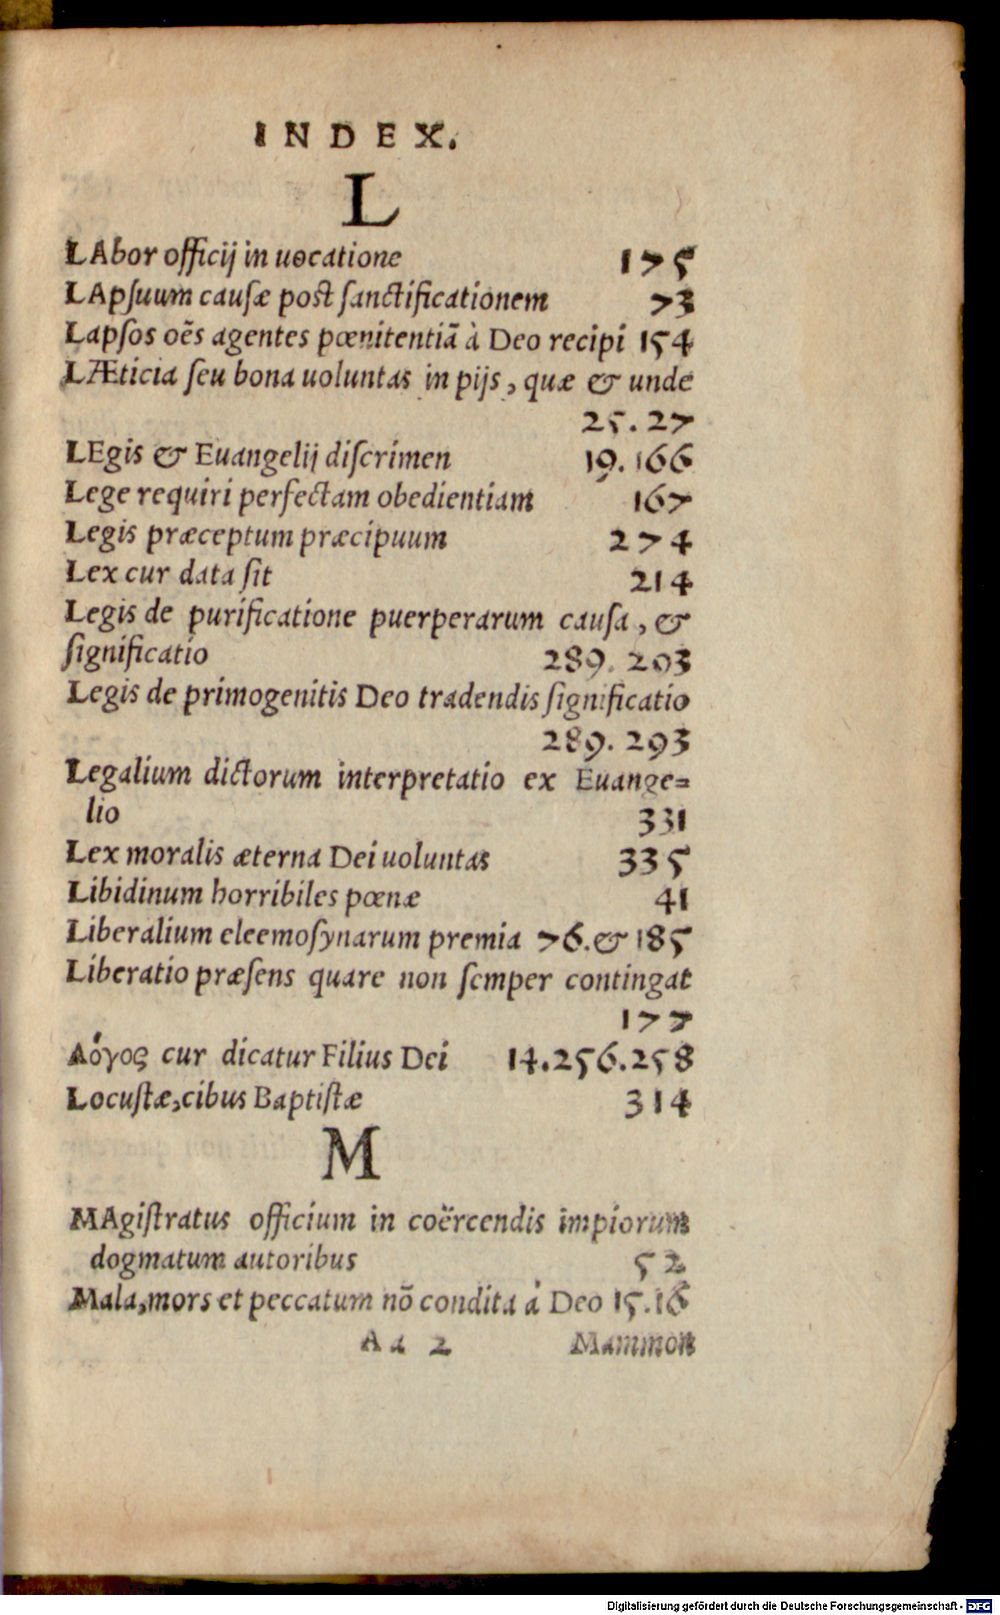 INDEX.
L
LAbor officij in uocatione 175
LApſuum cauſæ poſt ſanctificationem 73
Lapſos oẽs agentes pœnitentiã à Deo recipi 154
LÆticia ſeu bona uoluntas in pijs, quæ & unde
25.27
LEgis & Euangelij diſcrimen 19.166
Lege requiri perfectam obedientiam 167
Legis præceptum præcipuum 274
Lex cur data ſit 214
Legis de purificatione puerperarum cauſa, &
ſignificatio 289.293
Legis de primogenitis Deo tradendis ſignificatio
289.293
Legalium dictorum interpretatio ex Euange=
lio 331
Lex moralis æterna Dei uoluntas 335
Libidinum horribiles pœnæ 41
Liberalium eleemoſynarum premia 76.& 185
Liberatio præſens quare non ſemper contingat
177
Λόγος cur dicatur Filius Dei 14.256.258
Locuſtæ, cibus Baptiſtæ 314
M
MAgiſtratus officium in coërcendis impiorum
dogmatum autoribus 52
Mala, mors et peccatum nõ condita á Deo 15.16
Aa 2 Mammon
Digitalisierung gefördert durch die Deutsche Forschungsgemeinschaft - DFG